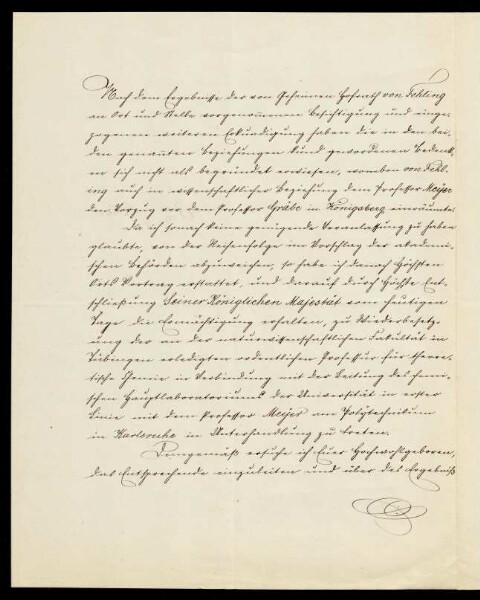 Nach dem Ergebnisse der von Geheimen Hofrath von Fehling
an Ort und Stelle vorgenommenen Besichtigung und einge-
zogenen weiteren Erkundigung haben die in den bei-
den genannten Beziehungen kund gewordenen Bedenk-
en sich nicht als begründet erwiesen, woneben von Fehl-
ing auch in wissenschaftlicher Beziehung dem Professor Meijer
den Vorzug vor dem Professor Gräbe in Königsberg einräumte.
Da ich sonach keine genügende Veranlassung zu haben
glaubte, von der Reihenfolge im Vorschlag der akademi-
schen Behörden abzuweichen, so habe ich danach Höchsten
Orts Vortrag erstattet, und darauf durch Höchste Ent-
schließung Seiner Königlichen Majestät vom heutigen
Tage die Ermächtigung erhalten, zu Wiederbesetz-
ung der an der naturwissenschaftlichen Fakultät in
Tübingen erledigten ordentlichen Professur für theore-
tische Chemie in Verbindung mit der Leitung des chemi-
schen Hauptlaboratoriums der Universität in erster
Linie mit dem Professor Meijer am Polytechnikum
in Karlsruhe in Unterhandlung zu treten.
Demgemäß ersuche ich Euer Hochwohlgeboren,
das Entsprechende einzuleiten und über das Ergebniß